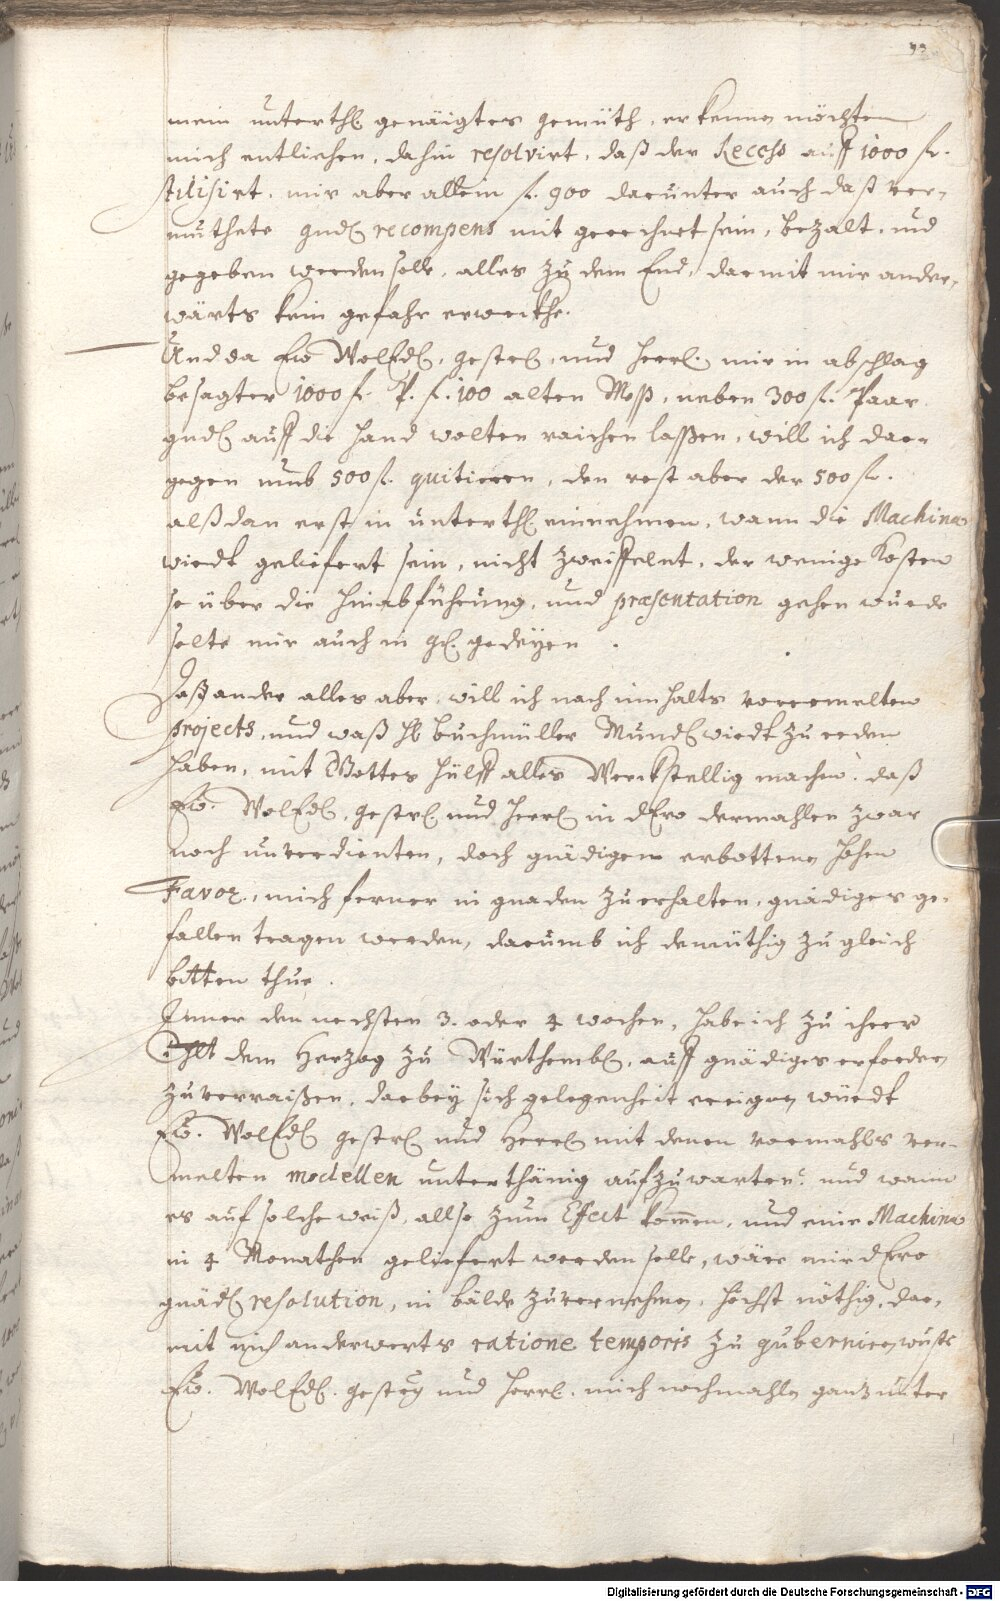 mein unterth. genaigtes gemüth, erkennen möchten
mich entlichen, dahin resolvirt, daß der Recess auff 1000 fl.
stilisirt, mir aber allein fl. 900 darunter auch daß ver-
muthete gnd. recompens mit gerechnet sein, bezalt, und
gegeben werden solle, alles zu dem End, darmit mir ander-
wärts kein gefahr erweckhe.
Und da Ew WolEdl. gestr. und Herrl. mir in abschlag
besagter 1000 fl. P. fl. 100 alten Meß, neben 300 fl. Paar
gnd. auff die hand wolten raichen lassen, will ich dar-
gegen umb 500 fl. quitieren, den rest aber der 500 fl.
alßdan erst in unterth. einnehmen, wann die Machina
wirdt geliefert sein, nicht zweiffelnt, der wenige Kosten
so über die hinabführung, und præsentation gehen wurde
solte mir auch in g. gedeyen.
Daß ander alles aber, will ich nach innhalts vorermelten
projects, und waß H. Buchmüller Mundl. wirdt zu reden
haben, mit Gottes hülff alles Werckstellig machen. daß
Ew. WolEdl. gestr. und Herrl. in dEro dermahlen zwar
noch unverdienten, doch gnädigen erbottenen hohen
Favor, mich ferner in gnaden zu erhalten, gnädiges ge-
fallen tragen werden, darumb ich demüthig zugleich
bitten thue.
Inner den nechsten 3. oder 4 wochen, habe ich zu ihrer
dem Herzog zu Würthemb. auff gnädiges erfordern
zu verraißen, darbey sich gelegenheit eraigen würdt
Ew. WolEdl. gestr. und Herrl. mit denen vormahls ver-
melten modellen unterthänig aufzuwarten. und wann
es auf solche weiß, allso zum Efect kommen, und eine Machina
in 4 Monathen geliefert werden solle, wäre mir dEro
gnäd. resolution, in bälde zuvernehmen, höchst nöthig, dar-
mit mich anderwerts ratione temporis zu guberniren wuste
Ew. WolEdl. gestreng und Herrl. mich nochmahlen ganz unter
Digitalisierung gefördert durch die Deutsche Forschungsgemeinschaft - DFG